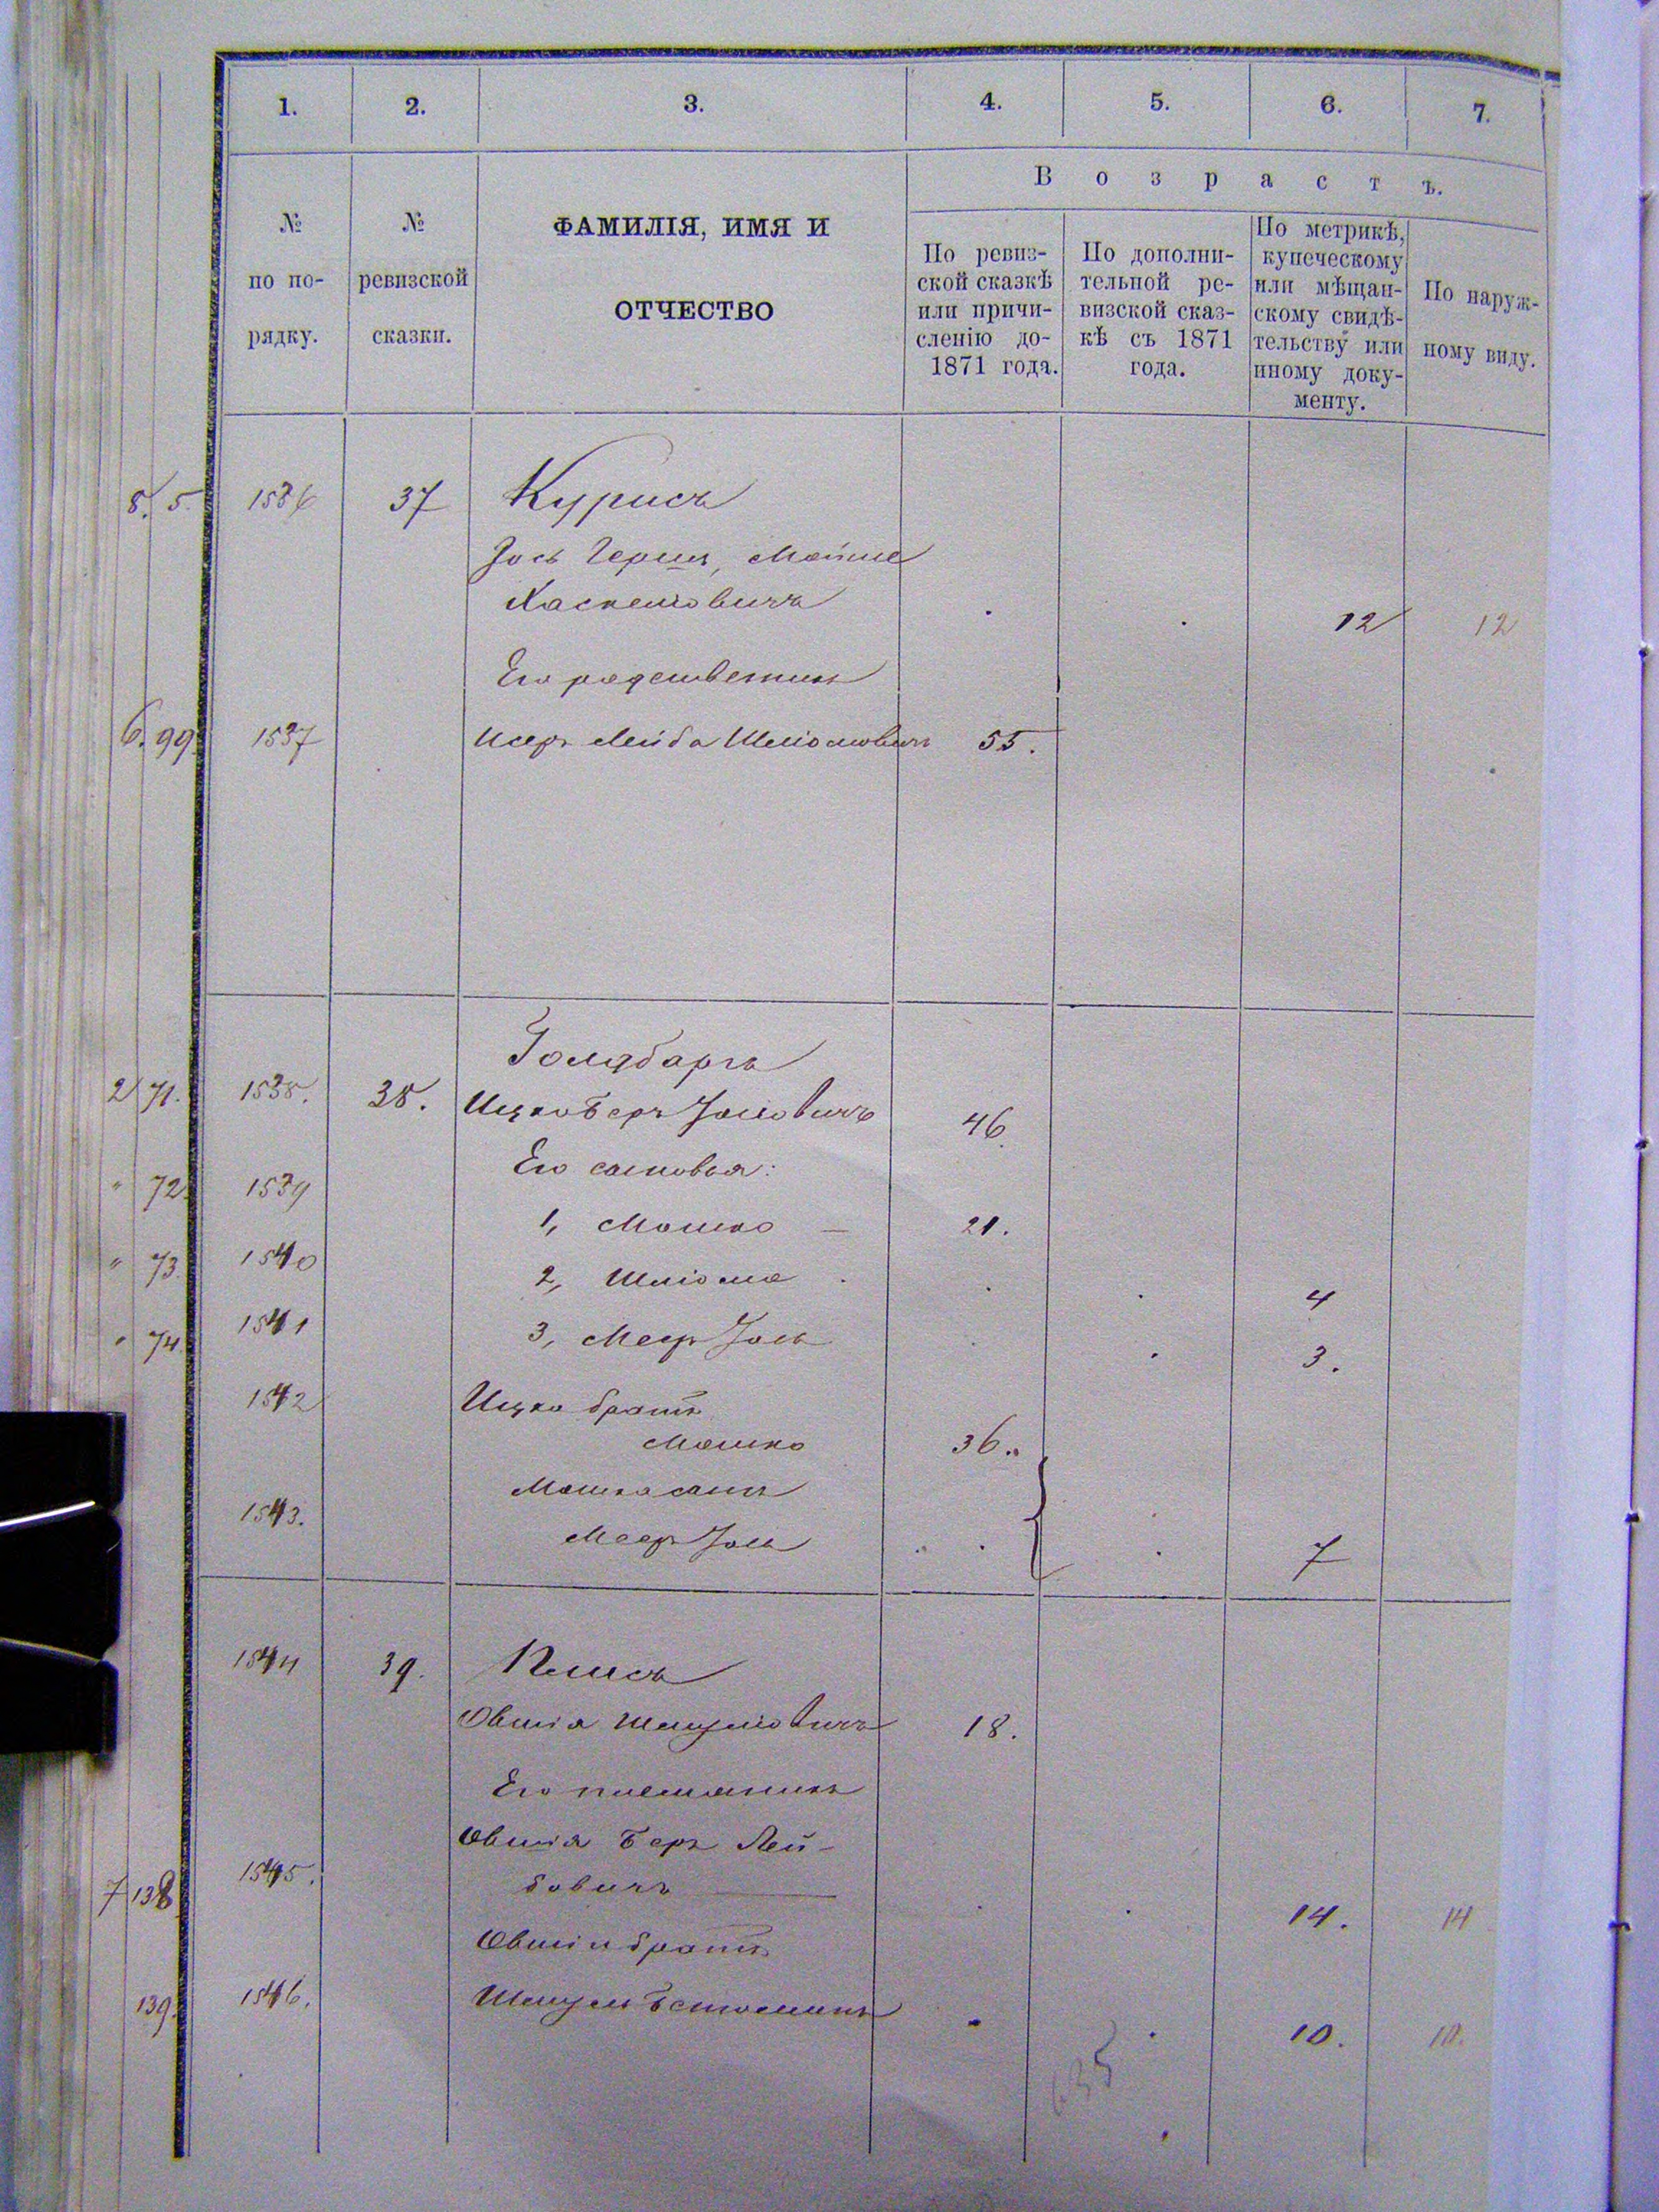 1. 2. 3. 4. 5. 6. 7.
Возрастъ.
№ по по-рядку.
№ ревизской сказки.
ФАМИЛІЯ, ИМЯ И
ОТЧЕСТВО
По ревиз-
ской сказкѣ
или причи-
сленію до-
1871 года.
По дополни-
тельной ре-
визской сказ-
кѣ съ 1871
года.
По метрикѣ,
купеческому
или мѣщан-
скому свидѣ-
тельству или
иному доку-
менту.
По наруж-
ному виду.
8. 5. 1536 37 Курисъ
Іось Герш, Мошко
Хаскелювичъ 12 12
Его родственикъ
6. 99. 1537 Исеръ Лейба Шліомовичъ 55.
Голдбаргъ
2 71. 1538. 38. Ицко Беръ Іосіовичъ 46.
Его сыновья:
" 72. 1539 1, Мошко — 21.
" 73. 1540 2, Шліома 4
" 74. 1541 3, Меер Іось 3.
1542 Ицки братъ
Мошко 36.
Мошка сынъ
1543. Меер Іось 7
1544 39. Клисъ
Овшія Шмуліовичъ 18.
Его племяникъ
Овшія Беръ Лей-
7 138 1545. бовичъ — 14. 14
Овшіи братъ
139. 1546. Шмуль 10. 10.
635